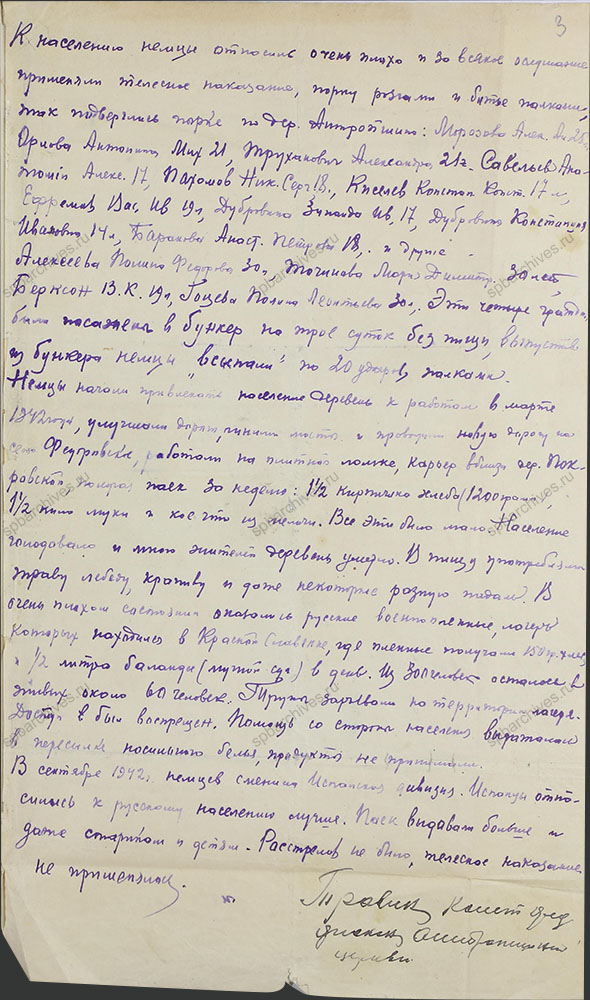 3
К населению немцы относились очень плохо и за всякое ослушание
применяли телесное наказание, порку розгами и битье палками,
так подверглись порке по дер. Антропшино: Морозова Алек. Ан 25,
Орлова Антонина Мих 21, Труханович Александра, 21г. Савельев Ана-
толий Алекс. 17, Пахомов Ник. Серг. 18., Киселев Констан Конст. 17 л,
Ефремов Вас, Ив 19л, Дубровина Зинаида Ив, 17, Дубровина
Ивановна 14л, Баранова Анаст. Петровна 18, и другие
Алексеева Полина Федоровна 30л, Точинова Мария Димитр. 30 лет,
Берксон В.К. 19л, Гоцева Полина Леонтьевна 30л, Эти четыре граждан.
были посажены в бункер на трое суток без пищи, выпустив
из бункера немцы "всыпали" по 20 ударов палками.
Немцы начали привлекать население деревень к работам в марте
1942 года, улучшали дороги, чинили мосты и проводили новую дорогу на
село Федоровское, работали на плитной ломке, карьер вблизи дер. Пок-
ровской, паек за неделю: 1 1/2 кирпичика хлеба (1200 грамм),
1 1/2 кило муки и кое что из мелочи. Все это было мало. Население
голодовало и много жителей деревень умерло. В пищу употребляли
траву лебеду, крапиву и даже некоторые разную падаль. В
очень плохом состоянии оказались русские военнопленные, лагерь
которых находился в Красной Славянке, где пленные получали 150 гр. хлеба
и 1/2 литра баланды (мучной суп) в день. Из 300 человек осталось в
живых около 60 человек. Трупы зарывали на территории лагеря.
Доступ в был воспрещен. Помощь со стороны населения выражалась
в пересылке носильного белья, продуктов не принимали.
В сентябре 1942г. немцев сменила Испанская дивизия. Испанцы отно-
сились к русскому населению лучше. Паек выдавали больше и
даже старикам и детям. Расстрелов не было, телесное наказание
не применялось.
Травин Конст Фед
диакон Антропшинской
церкви
spbarchives.ru
spbarchives.ru
spbarchives.ru
spbarchives.ru
spbarchives.ru
spbarchives.ru
spbarchives.ru
spbarchives.ru
spbarchives.ru